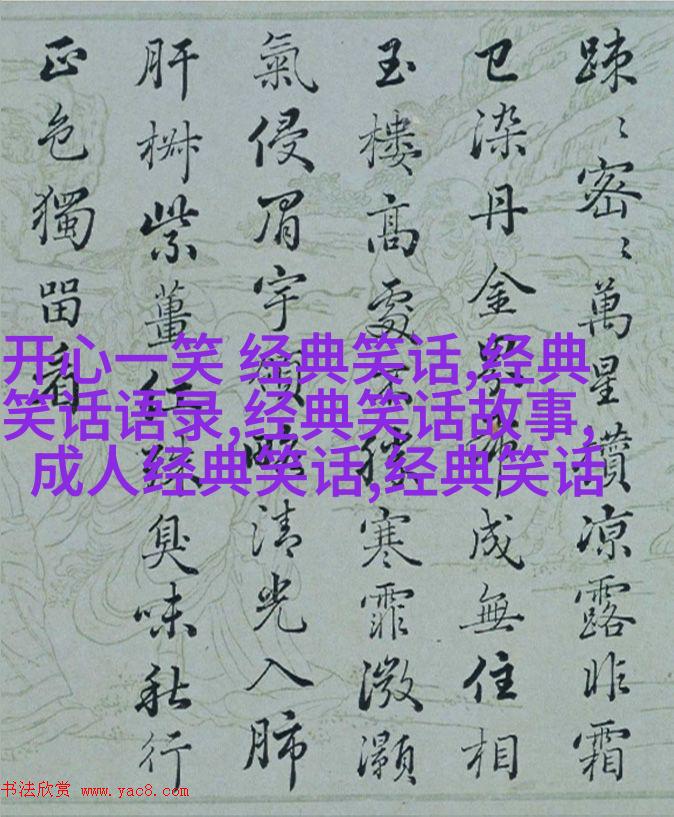 踈〻密〻萬星攢凉露昨霜
已染丹金成無住相
玉樓高處不勝寒霏微灝
氣侵眉宇清光入肺
肝椒紫薑殊臭味秋行
正色獨留看
开心一笑 经典笑话,经典
笑话语录,经典笑话故事,
成人经典笑话,经典笑话
书法欣赏 www.yac8.com